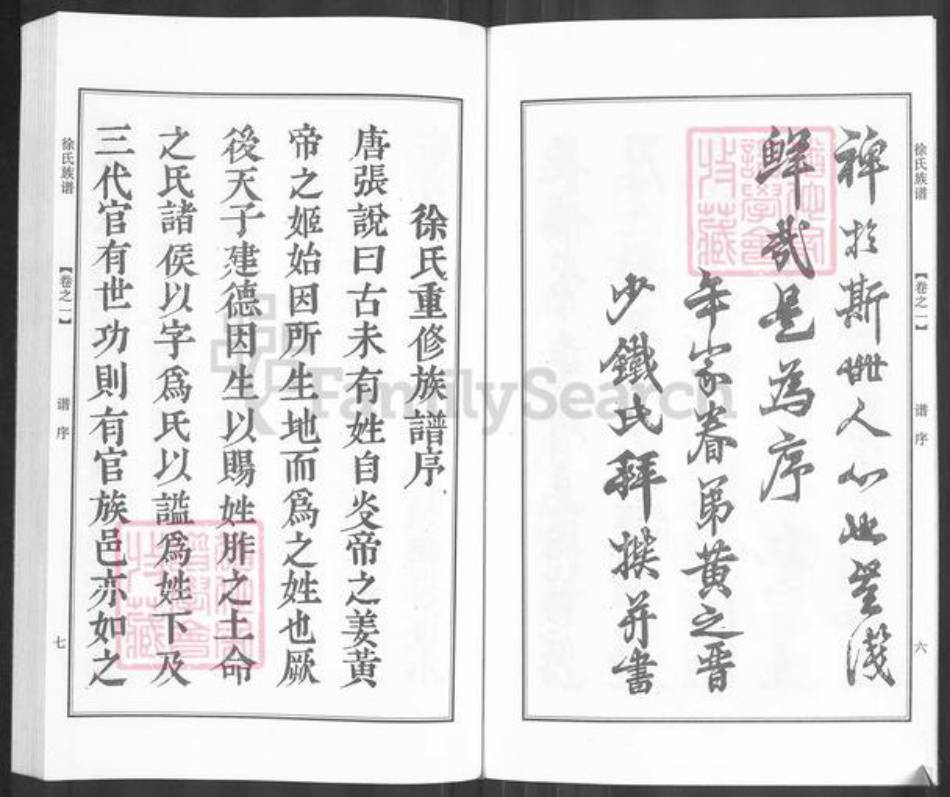 徐氏族谱
【卷之一】
谱序
六
裨於斯世人心也豈淺
鮮哉是為序
年家眷弟黃之晋
少鐵氏拜撰并書
徐氏重修族譜序
唐張說曰古未有姓自炎帝之姜黃
帝之姬始因所生地而爲之姓也厥
後天子建德因生以賜姓胙之土命
之氏諸侯以字爲氏以謚爲姓下及
三代官有世功則有官族邑亦如之
徐氏族谱
【卷之一】
谱序
七
FamilySearch